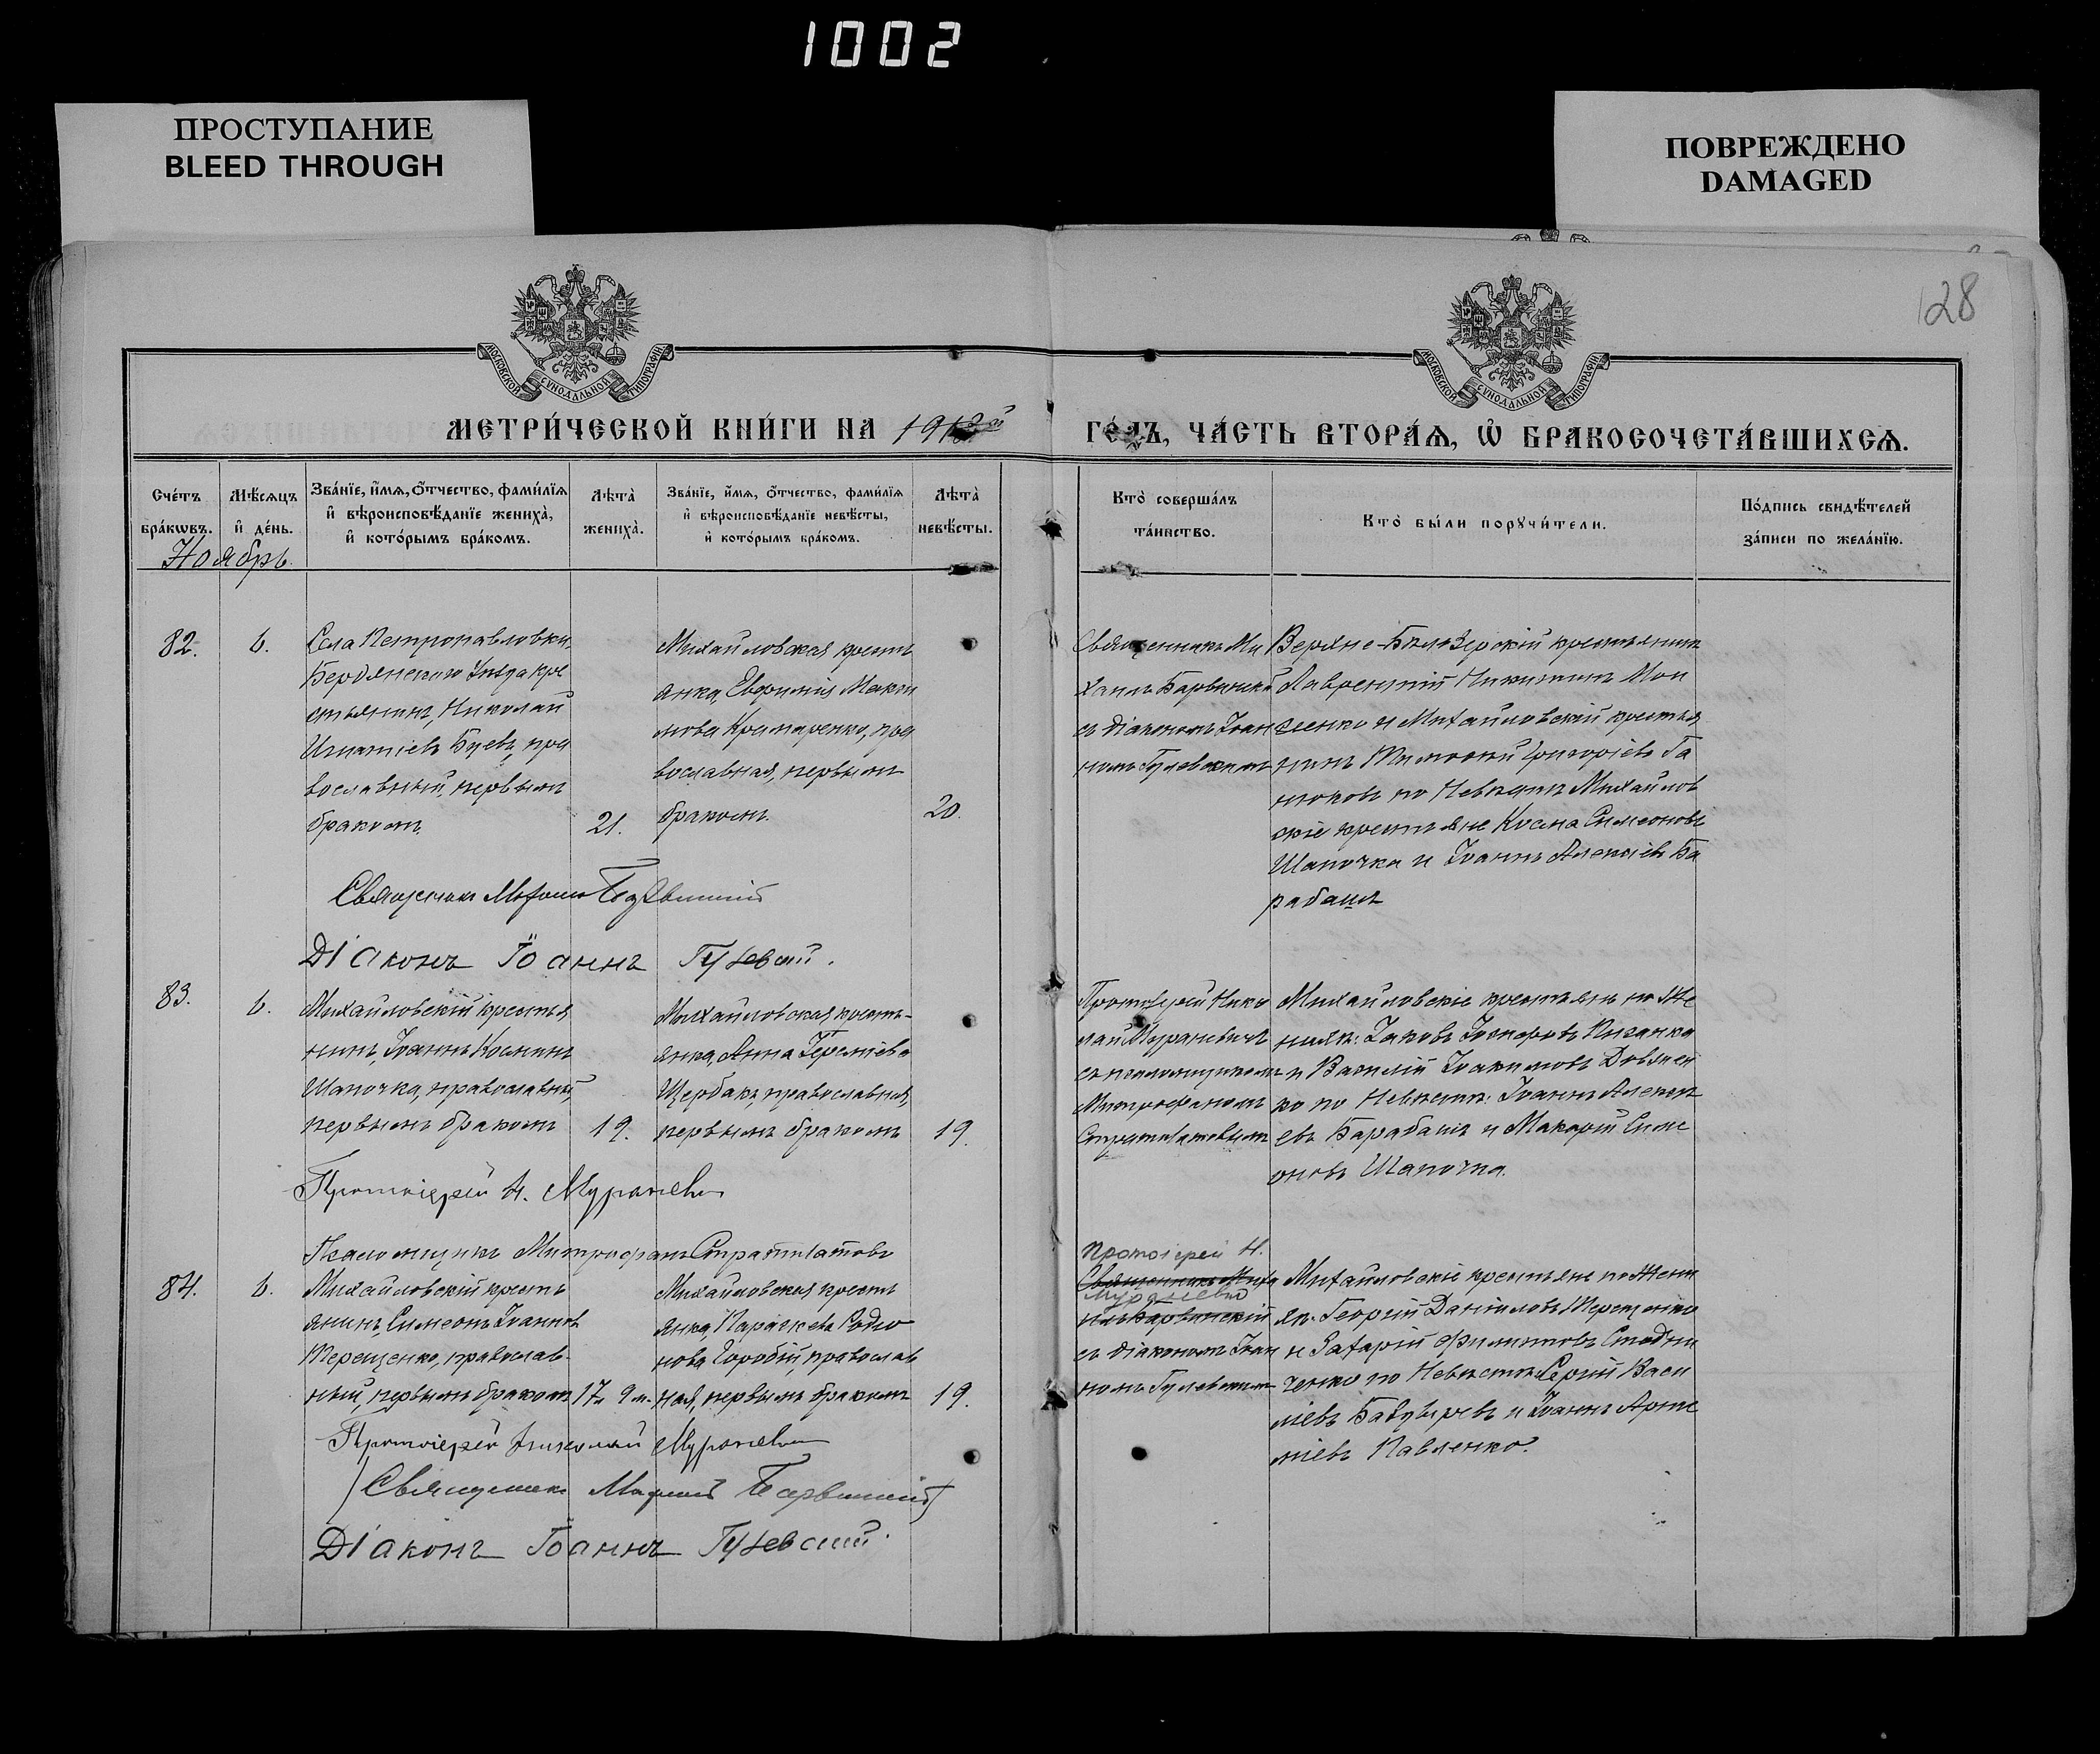 1002
ПРОСТУПАНИЕ
BLEED THROUGH
ПОВРЕЖДЕНО
DAMAGED
128
МОСКОВСКОЙ СѴНОДАЛЬНОЙ ТИПОГРАФІИ
МОСКОВСКОЙ СѴНОДАЛЬНОЙ ТИПОГРАФІИ
МЕТРИ́ЧЕСКОЙ КНИ́ГИ НА 1913й
ГО́ДЪ, ЧА́СТЬ ВТОРА́Я, Ѡ҆ БРАКОСОЧЕТА́ВШИХСЯ.
Сче́тъ
бра́кѡвъ.
Мѣ́сяцъ
и҆ де́нь.
Зва́нїе, и҆́мя, ѻ҆́тчество, фами́лїя
и҆ вѣроисповѣ́данїе жениха̀,
и҆ кото́рымъ бра́комъ.
Лѣта̀
жениха̀.
Зва́нїе, и҆́мя, ѻ҆́тчество, фами́лїя
и҆ вѣроисповѣ́данїе невѣ́сты,
и҆ кото́рымъ бра́комъ.
Лѣта̀
невѣ́сты.
Кто̀ соверша́лъ
та́инство.
Кто̀ бы́ли порꙋчи́тели.
По́дпись свидѣ́телей
за́писи по жела́нїю.
Ноябрь.
82.
6.
Села Петропавловки,
Бердянскаго Уѣзда кре
стьянинъ, Николай
Игнатіевъ Буевъ, пра
вославный, первымъ
бракомъ.
21.
Михайловская кресть
янка, Евфимія Макси
мова Крамаренко, пра
вославная, первымъ
бракомъ.
20.
Священникъ Ми
хаилъ Барвинскій
съ діакономъ Іоан
номъ Гулевскимъ
Верхне-Бѣлозерскій крестьянинъ
Лаврентій Никитинъ Мои
сеенко и Михайловскій крестья
нинъ Тимофій Григоріевъ Га
нюковъ по Невѣстѣ Михайлов
скіе крестьяне Косма Симеоновъ
Шапочка и Іоаннъ Алексіевъ Ба
рабашъ
Священникъ Михаилъ Барвинскій
Діаконъ Іоаннъ Гулевскій.
83.
6.
Михайловскій крестья
нинъ, Іоаннъ Косминъ
Шапочка, православный,
первымъ бракомъ
19.
Михайловская кресть-
янка, Анна Іереміева
Щербакъ, православная,
первымъ бракомъ
19.
Протоіерей Нико
лай Мураневичъ
съ псаломщикомъ
Митрофаномъ
Стратилатовымъ
Михайловскіе крестьяне по Же
нихѣ: Іаковъ Іосифовъ Писанка
и Василій Іоакимовъ Довжен
ко по Невѣстѣ: Іоаннъ Алексі
евъ Барабашъ и Макарій Симе
оновъ Шапочка.
Протоіерей Н. Мураневичъ
Псаломщикъ Митрофанъ Стратилатовъ
84.
6.
Михайловскій кресть
янинъ, Симеонъ Іоанновъ
Терещенко, православ-
ный, первымъ бракомъ
17 л 9 м.
Михайловская кресть
янка, Параскева Родіо
нова Горобій, православ
ная, первымъ бракомъ
19.
Протоіерей Н.
Священникъ Миха
Мураневичъ
илъ Барвинскій
съ діакономъ Іоан
номъ Гулевскимъ
Михайловскіе крестьяне по Жени
хѣ: Георгій Даніиловъ Терещенко
и Захарій Филипповъ Стадни
ченко по Невѣстѣ: Сергій Васи
ліевъ Бавыревъ и Іоаннъ Арте
міевъ Павленко.
Протоіерей Николай Мураневичъ
(Священникъ Михаилъ Барвинскій)
Діаконъ Іоаннъ Гулевскій.